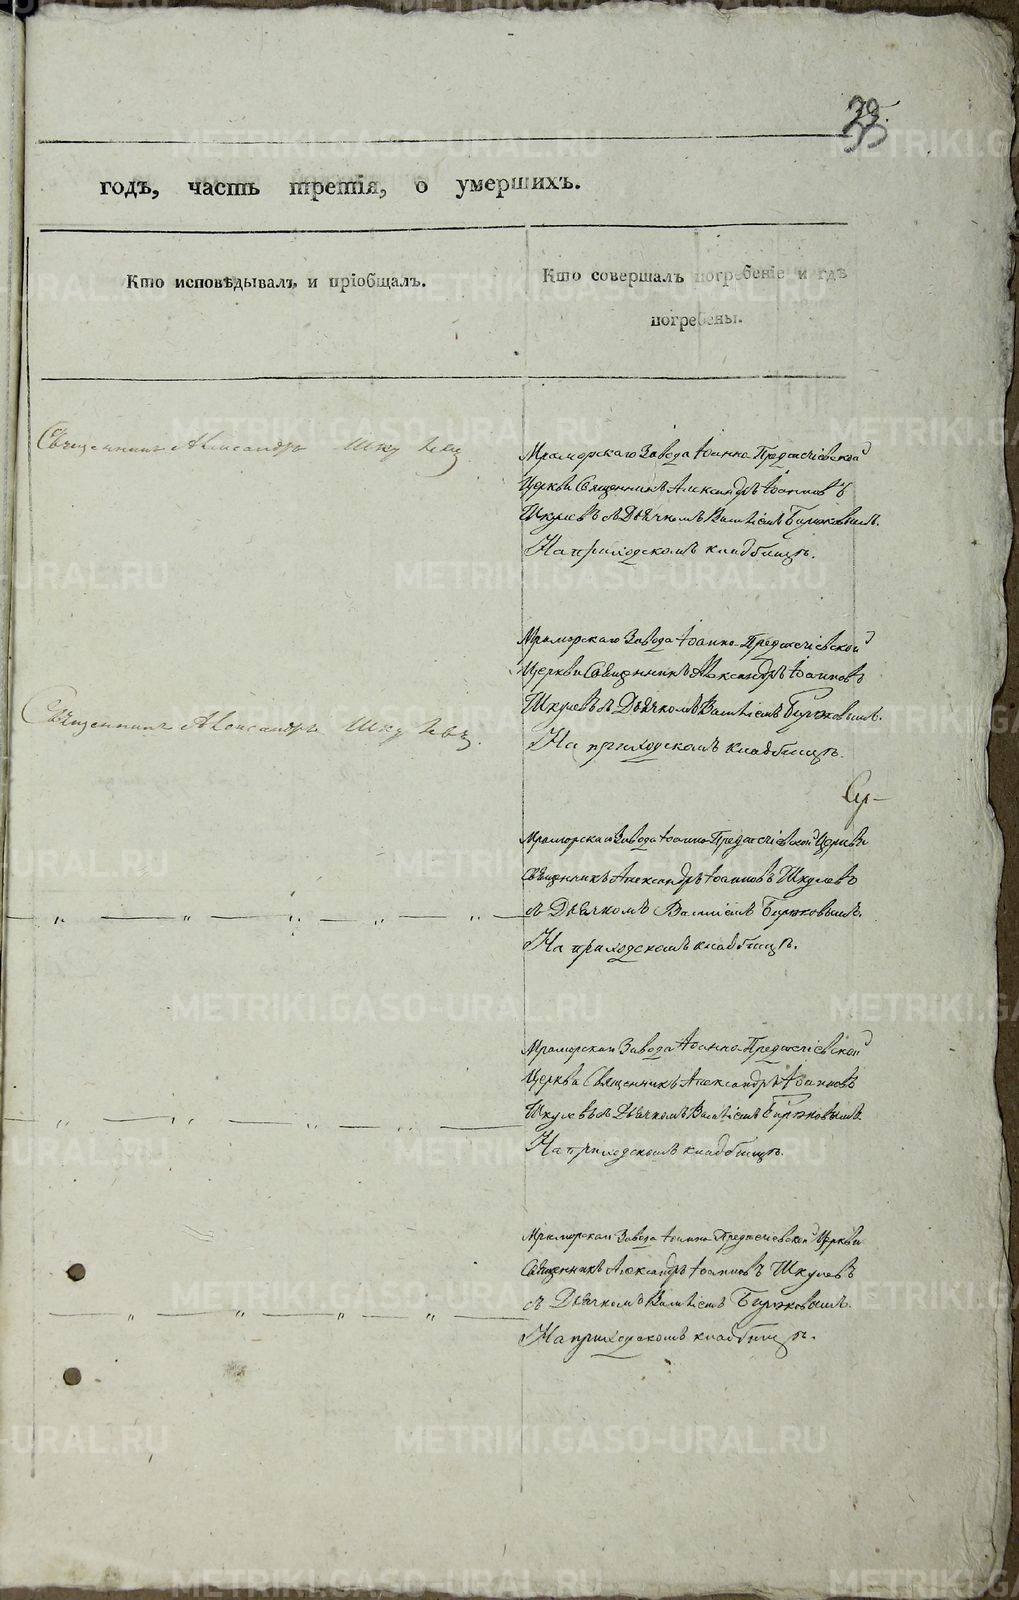 33.
годъ, часть третія, о умершихъ.
Кто исповѣдывалъ и пріобщалъ.
Кто совершалъ погребеніе и гдѣ
погребены.
Священникъ Александръ Шкулевъ
Мраморскаго Завода Іоанно-Предтечіевской
Церкви Священникъ Александръ Іоанновъ
Шкулевъ съ Дьячкомъ Василіемъ Бирюковымъ.
На приходскомъ кладбищѣ.
Мраморскаго Завода Іоанно-Предтечіевской
Церкви Священникъ Александръ Іоанновъ
Шкулевъ съ Дьячкомъ Василіемъ Бирюковымъ.
Священникъ Александръ Шкулевъ.
На приходскомъ кладбищѣ.
Мраморскаго Завода Іоанно-Предтечіевской Церкви
Священникъ Александръ Іоанновъ Шкулевъ
— „ — „ — „ — „ — „ —
съ Дьячкомъ Василіемъ Бирюковымъ.
На приходскомъ кладбищѣ.
Мраморскаго Завода Іоанно-Предтечіевской
Церкви Священникъ Александръ Іоанновъ
Шкулевъ съ Дьячкомъ Василіемъ Бирюковымъ.
— „ — „ — „ — „ —
На приходскомъ кладбищѣ.
Мраморскаго Завода Іоанно-Предтечіевской Церкви
Священникъ Александръ Іоанновъ Шкулевъ
съ Дьячкомъ Василіемъ Бирюковымъ.
— „ — „ — „ — „ —
На приходскомъ кладбищѣ.
METRIKI.GASO-URAL.RU